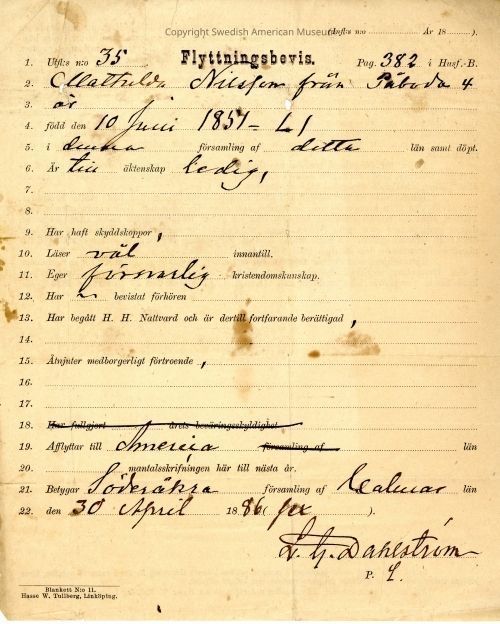 Copyright Swedish American Museum
(Utfks n:o År 18 ).
1. Utfks n:o 35 Flyttningsbevis. Pag. 382 i Husf.-B.
2. Mathilda Nilsson från Påboda 4
3. är
4. född den 10 Juni 1851
5. i denna församling af detta län samt döpt.
6. Är till äktenskap ledig,
7.
8.
9. Har haft skyddskoppor,
10. Läser väl innantill.
11. Eger försvarlig kristendomskunskap.
12. Har bevistat förhören
13. Har begått H. H. Nattvard och är dertill fortfarande berättigad,
14.
15. Åtnjuter medborgerligt förtroende,
16.
17.
18. Har fullgjort årets beväringsskyldighet
19. Afflyttar till America församling af län
20. mantalsskrifningen här till nästa år.
21. Betygar Söderåkra församling af Calmar län
22. den 30 April 1886 ( ).
Dahlström
P.
Blankett N:o 11.
Hasse W. Tullberg, Linköping.